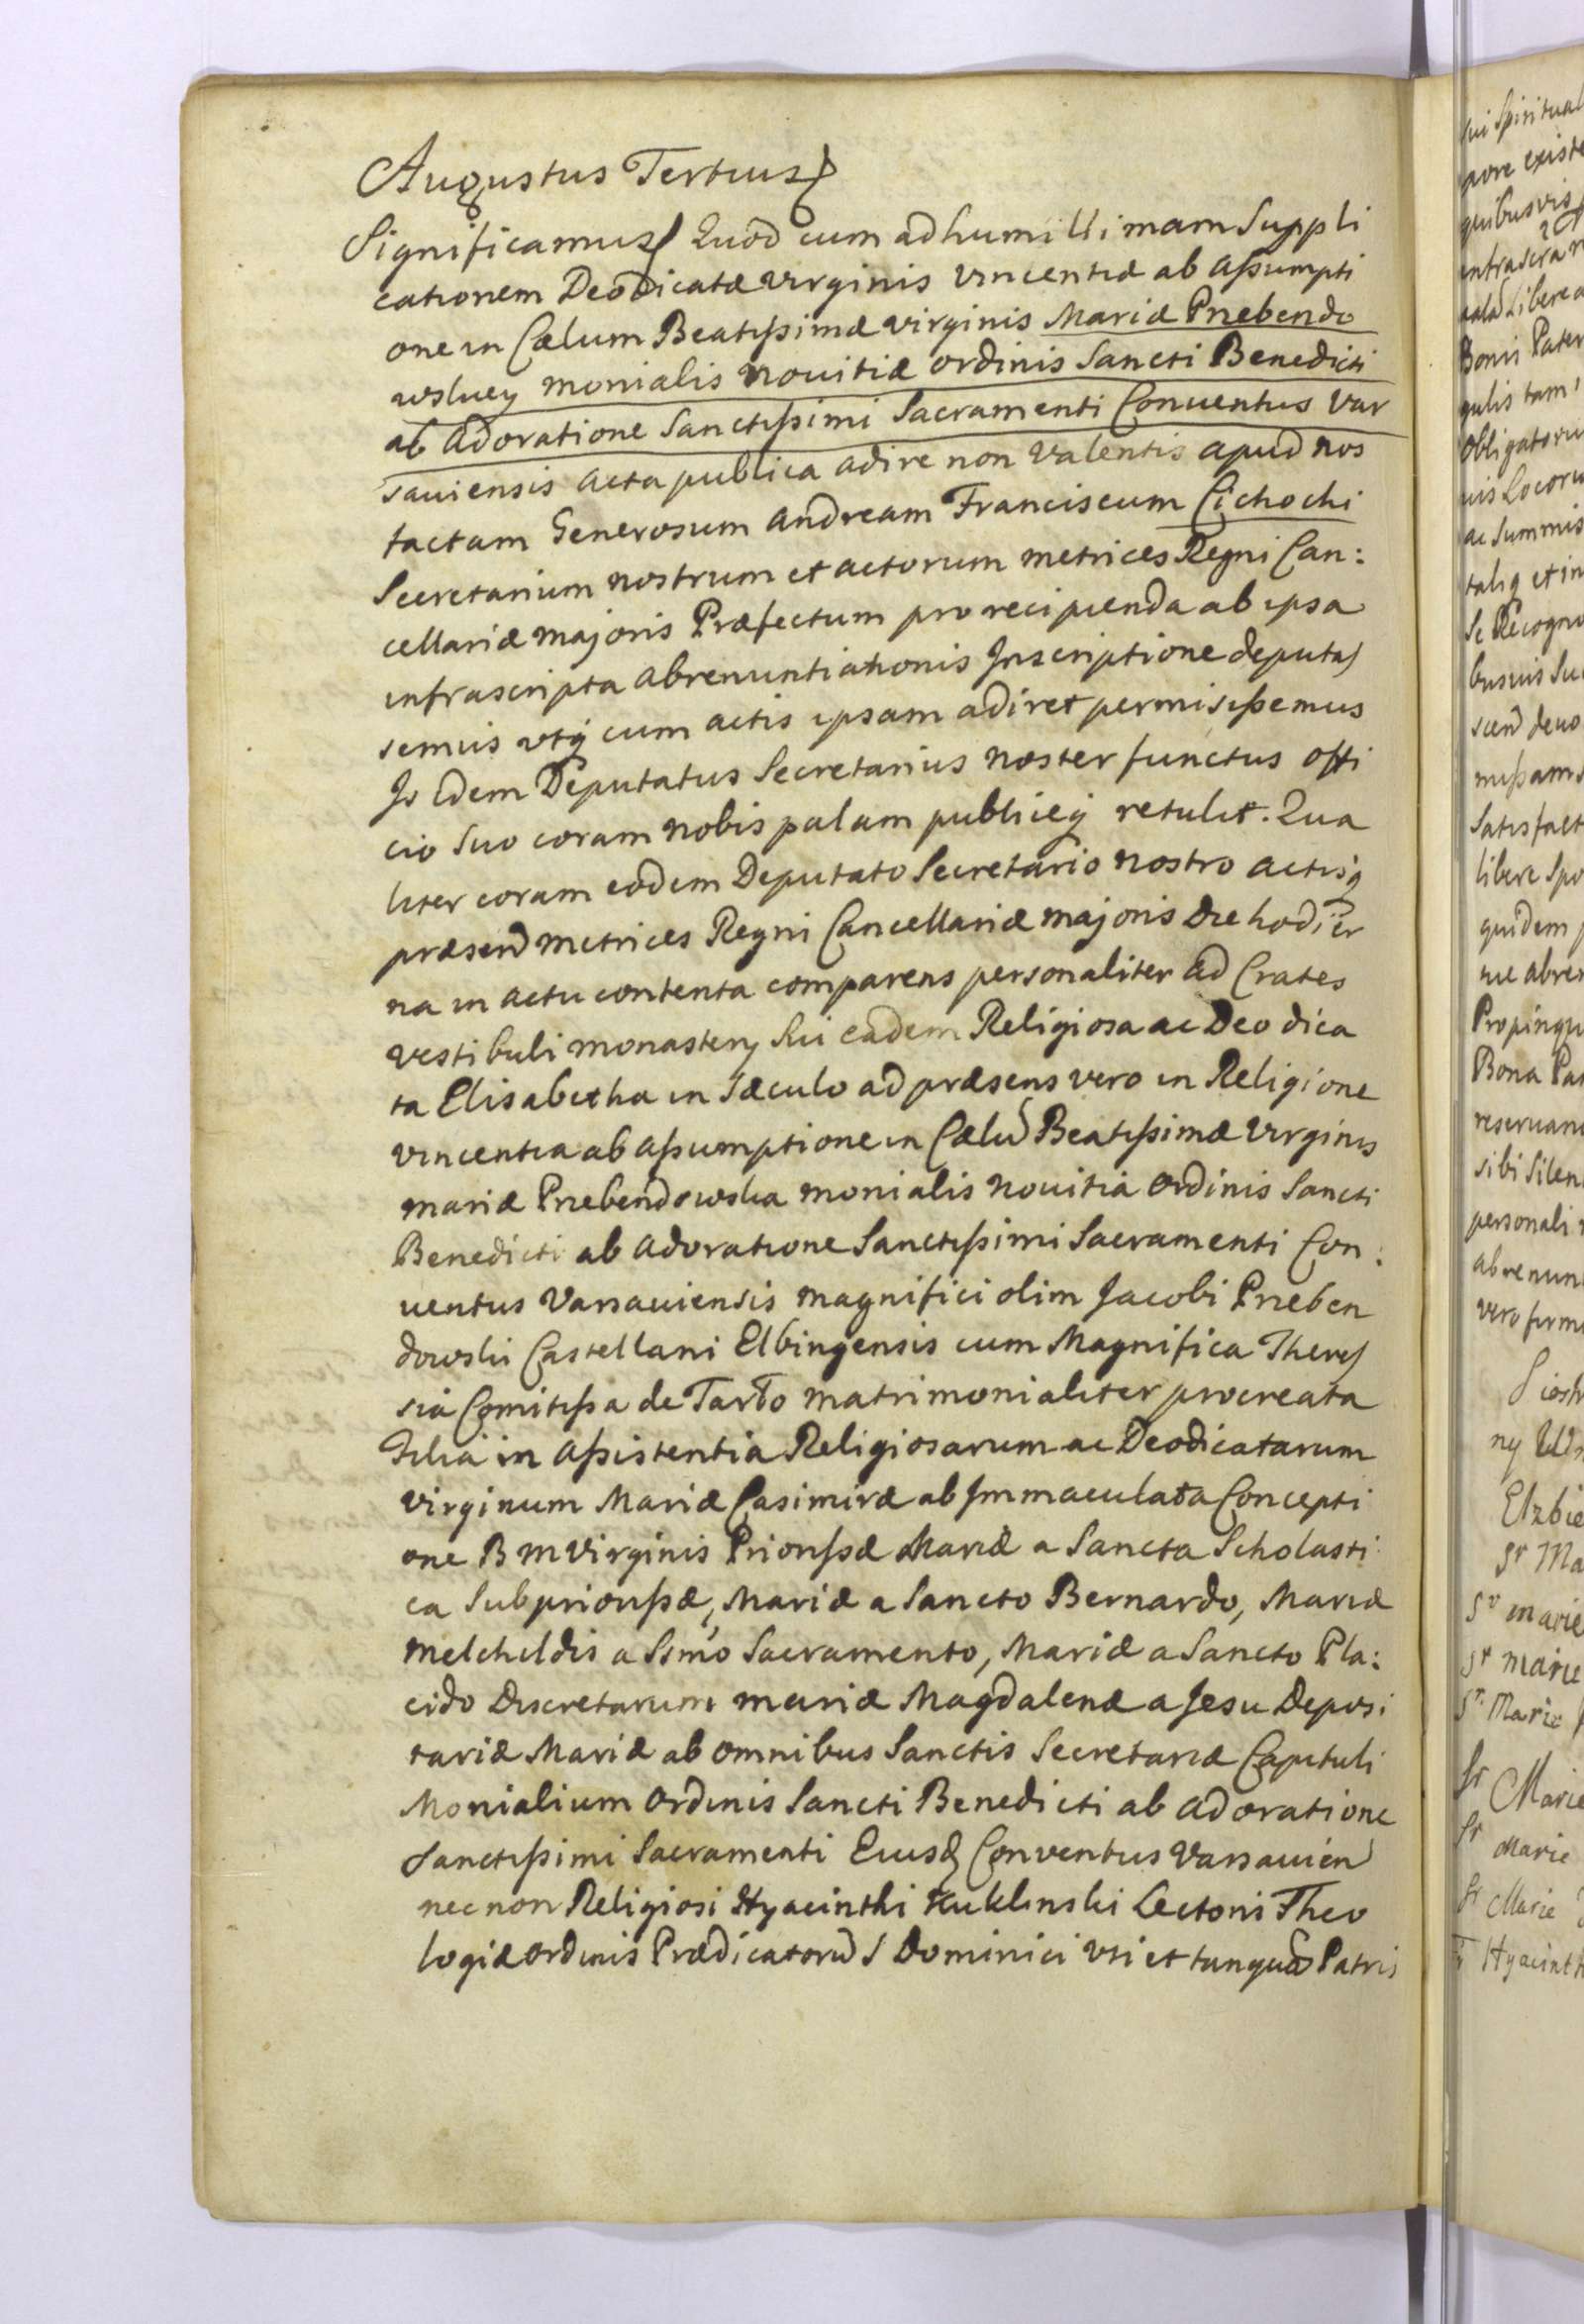 Augustus Tertius
Significamus Quod cum ad humillimam Suppli
cationem Deodicatæ virginis Vincentiæ ab Assumpti
one in Cælum Beatissimæ virginis Mariæ Przebendo
wskiey monialis novitiæ ordinis Sancti Benedicti
ab Adoratione Sanctissimi Sacramenti Conventus Var
saviensis acta publica adire non valentis apud nos
factam Generosum Andream Franciscum Cichocki
Secretarium nostrum et actorum metrices Regni Can:
cellariæ majoris Præfectum pro recipienda ab ipsa
infrascripta abrenuntiationis Inscriptione deputas
semus utq cum actis ipsam adiret permisissemus
Is idem Deputatus Secretarius noster functus offi
cio suo coram nobis palam publiceq retulit. Qua
liter coram eodem Deputato Secretario nostro actisq
præsen metrices Regni Cancellariæ majoris Die hodier
na in actu contenta comparens personaliter ad Crates
vestibuli monastery sui eadem Religiosa ac Deo dica
ta Elisabetha in Sæculo ad præsens vero in Religione
vincentia ab assumptione in Cælu Beatissimæ Virginis
mariæ Przebendowska monialis novitia Ordinis Sancti
Benedicti ab Adoratione Sanctissimi Sacramenti Con:
ventus Varsaviensis magnifici olim Jacobi Przeben
dowski Castellani Elbingensis cum Magnifica There
sia Comitissa de Tarło matrimonialiter procreata
Filia in assistentia Religiosarum ac Deodicatarum
virginum Mariæ Casimiræ ab Immaculata Concepti
one B M Virginis Priorissæ Mariæ a Sancta Scholasti
ca Subpriorissæ, Mariæ a Sancto Bernardo, Mariæ
Melchildis a Ssmo Sacramento, Mariæ a Sancto Pla:
cido Discretarum mariæ Magdalenæ a Jesu Deposi
tariæ Mariæ ab omnibus Sanctis Secretariæ Capituli
Monialium Ordinis Sancti Benedicti ab adoratione
Sanctissimi Sacramenti Eiusd Conventus Varsavien
nec non Religiosi Hyacinthi Kuklinski Lectoris Theo
logiæ ordinis Prædicatoru S Dominici uti et tanqua Patris
sui Spiritual
pore existe
quibusvis
Bonis Pater
gulis tam
Obligatoru
uis Locoru
ac summis
taliq et in
se Recogno
Satisfact
libere Spo
quidem
Propinqu
Bona Pat
reservan
sibi Silen
personali
abrenun
vero firm
Elzbie
Sr Ma
Sr marie
Sr marie
Sr Marie
Sr Marie
Sr Marie
Sr Marie
Hyacint